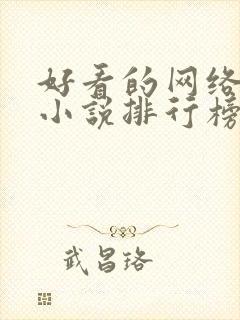 好看的网络
小说排行榜
武昌珞